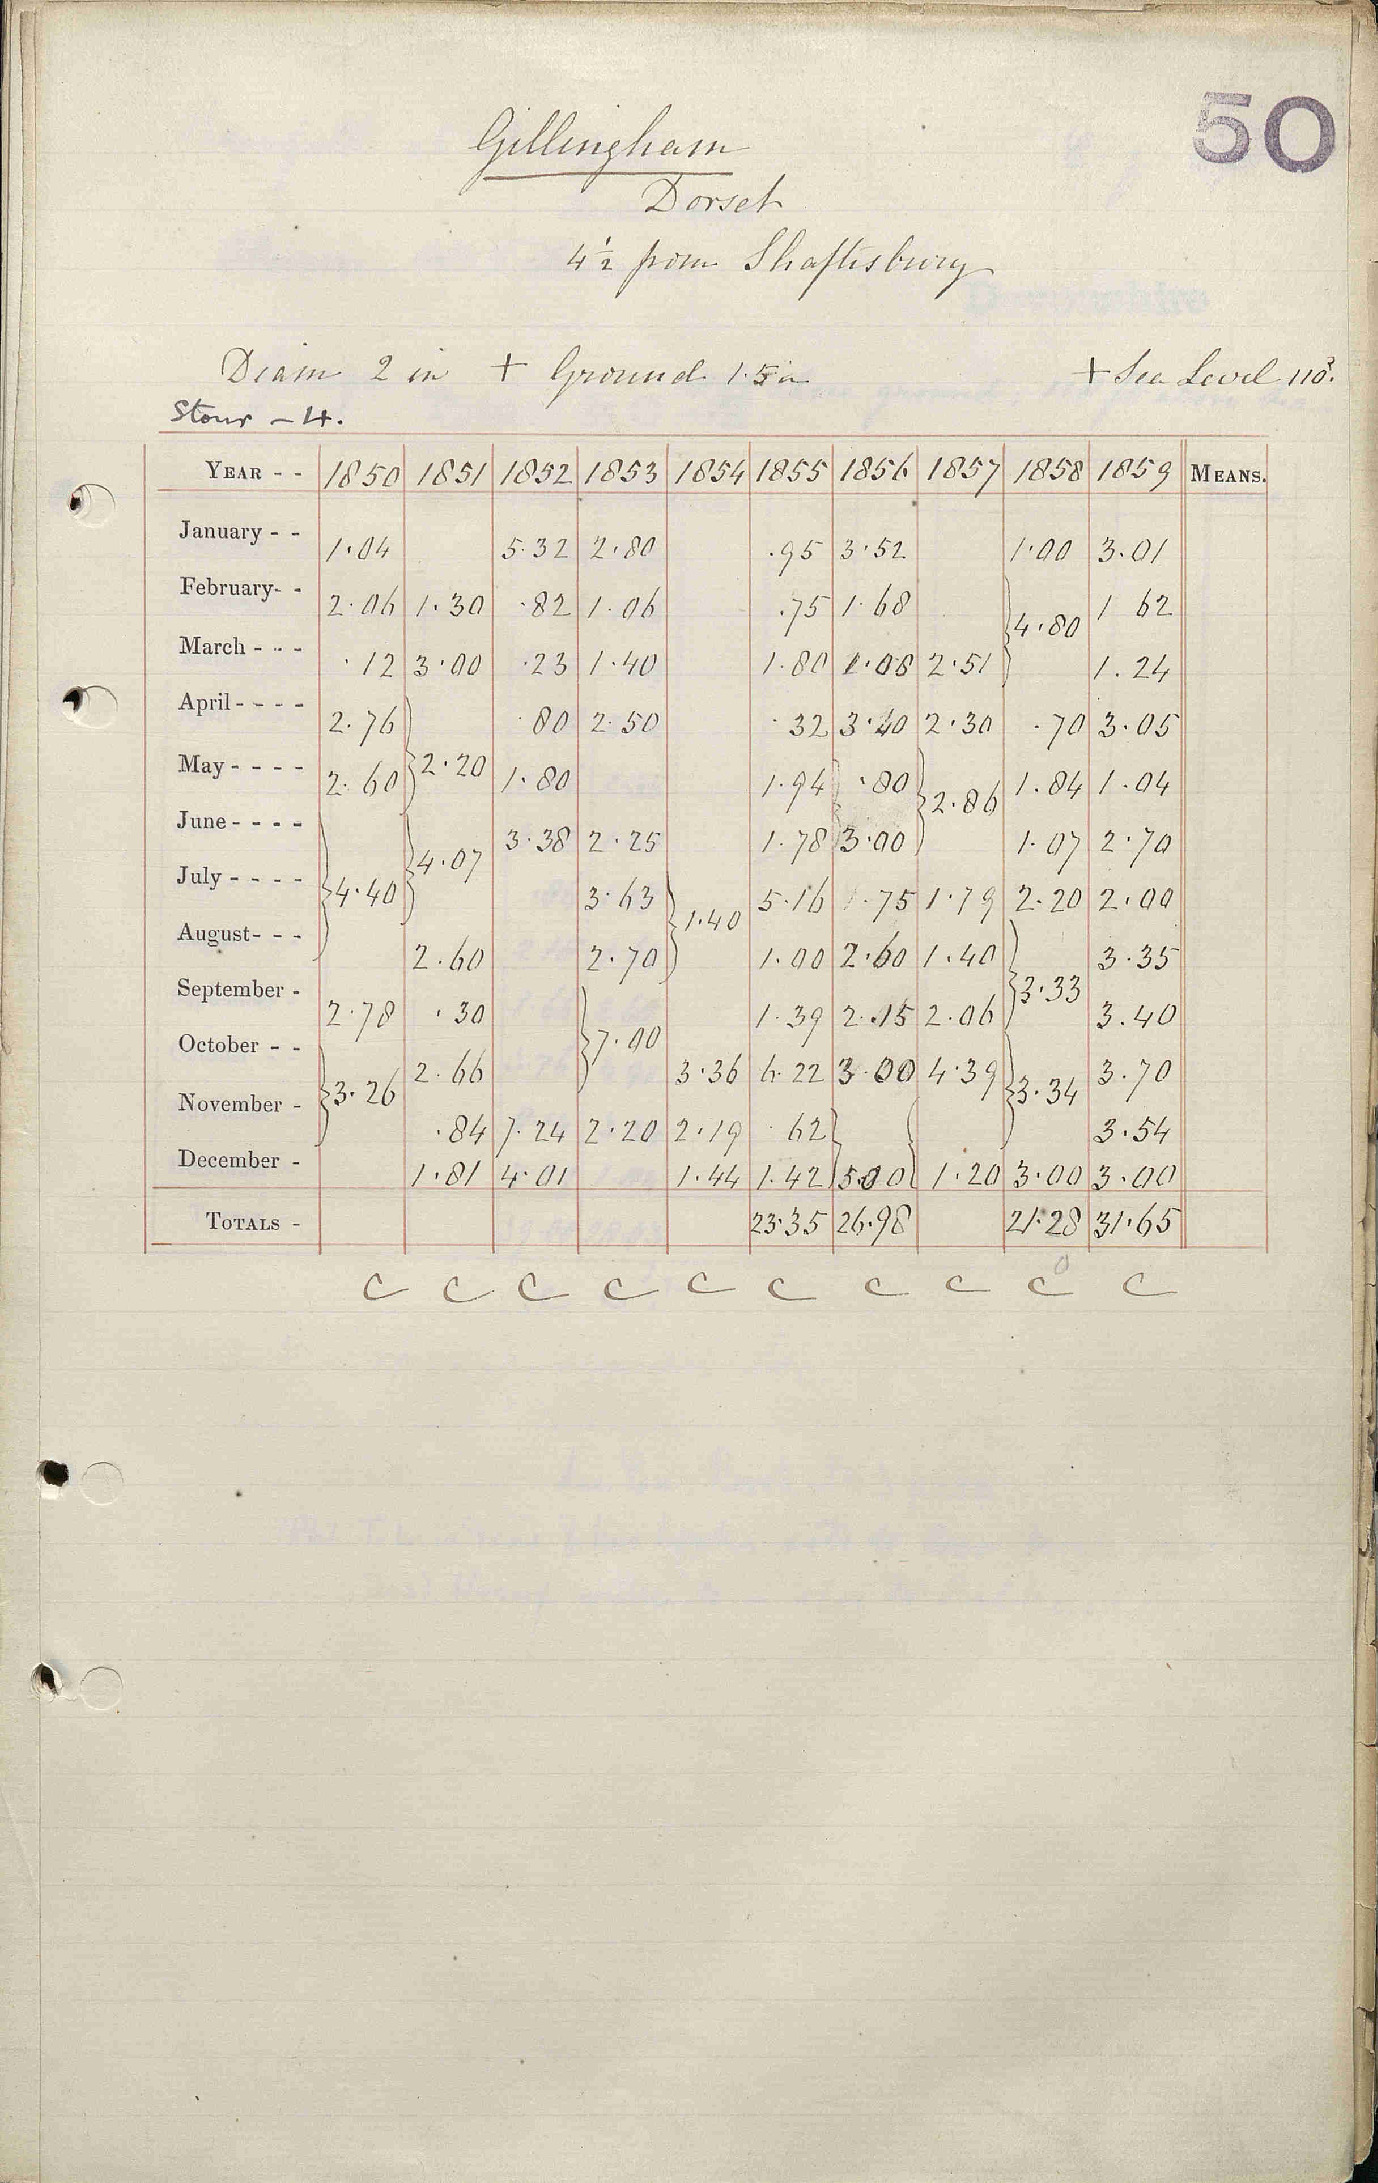 50
Gillingham
Dorset
4½ from Shaftisbury
Diam 2 in + Ground 1.5 in + Sea Level 110?
Stour - 4.
YEAR - - 1850 1851 1852 1853 1854 1855 1856 1857 1858 1859 MEANS.
January - - 1.04 5.32 2.80 .95 3.52 1.00 3.01
February- - 2.06 1.30 .82 1.06 .75 1.68 } 4.80 1 62
March - - - .12 3.00 .23 1.40 1.80 1.08 2.51 1.24
April - - - - 2.76 } 2.20 .80 2.50 .32 3.40 2.30 .70 3.05
May - - - - 2.60 1.80 1.94 .80 } 2.86 1.84 1.04
June - - - - } 4.40 } 4.07 3.38 2.25 1.78 3.00 1.07 2.70
July - - - - 3.63 } 1.40 5.16 1.75 1.79 2.20 2.00
August- - - 2.60 2.70 1.00 2.60 1.40 } 3.33 3.35
September - 2.78 .30 } 7.00 1.39 2.15 2.06 3.40
October - - } 3.26 2.66 3.36 6.22 3.00 4.39 } 3.34 3.70
November - .84 7.24 2.20 2.19 .62 } 3.54
December - 1.81 4.01 1.44 1.42 5.00 { 1.20 3.00 3.00
TOTALS - 23.35 26.98 21.28 31.65
C C C C C C C C C C